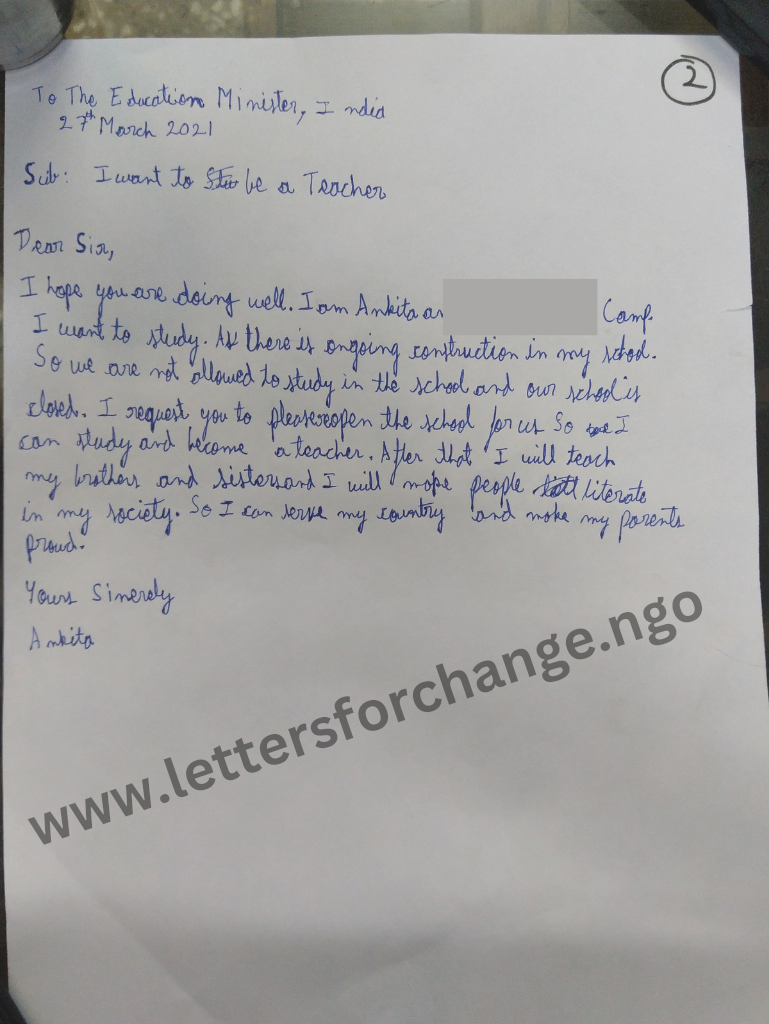 2
To The Education Minister, India
27th March 2021
Sub: I want to be a Teacher
Dear Sir,
I hope you are doing well. I am Ankita Camp.
I want to study. As there is ongoing construction in my school.
So we are not allowed to study in the school and our school is
closed. I request you to please reopen the school for us So I
can study and become a teacher. After that I will teach
my brothers and sisters and I will mope people literate
in my society. So I can serve my country and make my parents
proud.
Yours Sinerely
Ankita
www.lettersforchange.ngo